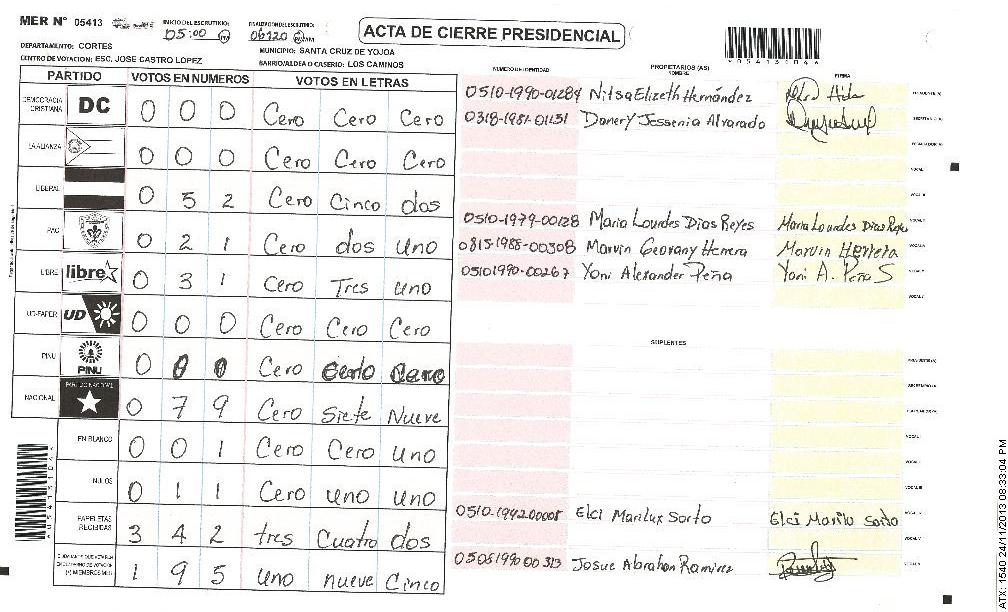 MER Nº 05413
INICIO DEL ESCRUTINIO: 05:00
FINALIZACION DEL ESCRUTINIO: 06:20
ACTA DE CIERRE PRESIDENCIAL
DEPARTAMENTO: CORTES
MUNICIPIO: SANTA CRUZ DE YOJOA
CENTRO DE VOTACION: ESC. JOSE CASTRO LOPEZ
BARRIO/ALDEA O CASERIO: LOS CAMINOS
PARTIDO VOTOS EN NUMEROS VOTOS EN LETRAS
DEMOCRACIA CRISTIANA DC 0 0 0 Cero Cero Cero
LA ALIANZA 0 0 0 Cero Cero Cero
LIBERAL 0 5 2 Cero Cinco dos
PAC 0 2 1 Cero dos uno
LIBRE libre 0 3 1 Cero Tres uno
UD-FAPER UD 0 0 0 Cero Cero Cero
PINU PINU 0 0 0 Cero Cero Cero
NACIONAL PARTIDO NACIONAL 0 7 9 Cero Siete Nueve
EN BLANCO 0 0 1 Cero Cero uno
NULOS 0 1 1 Cero uno uno
PAPELETAS RECIBIDAS 3 4 2 tres Cuatro dos
(+) MIEMBROS MER 1 9 5 uno nueve Cinco
NUMERO DE IDENTIDAD PROPIETARIOS (AS) NOMBRE FIRMA
0510-1990-01284 Nitsa Elizeth Hernández PRESIDENTE(A)
0318-1981-01131 Danery Jessenia Alvarado SECRETARIO(A)
0510-1979-00128 Maria Lourdes Dias Reyes Maria Lourdes Dias Reyes
0815-1988-00308 Marvin Geovany Herrera Marvin Herrera
05101990-00267 Yoni Alexander Peña Yoni A. Peña S
SUPLENTES
0510-199200008 Elci Marilux Sorto Elci Marilu Sorto
0506199000313 Josue Abrahan Ramirez
ATX: 1540 24/11/2013 08:33:04 PM